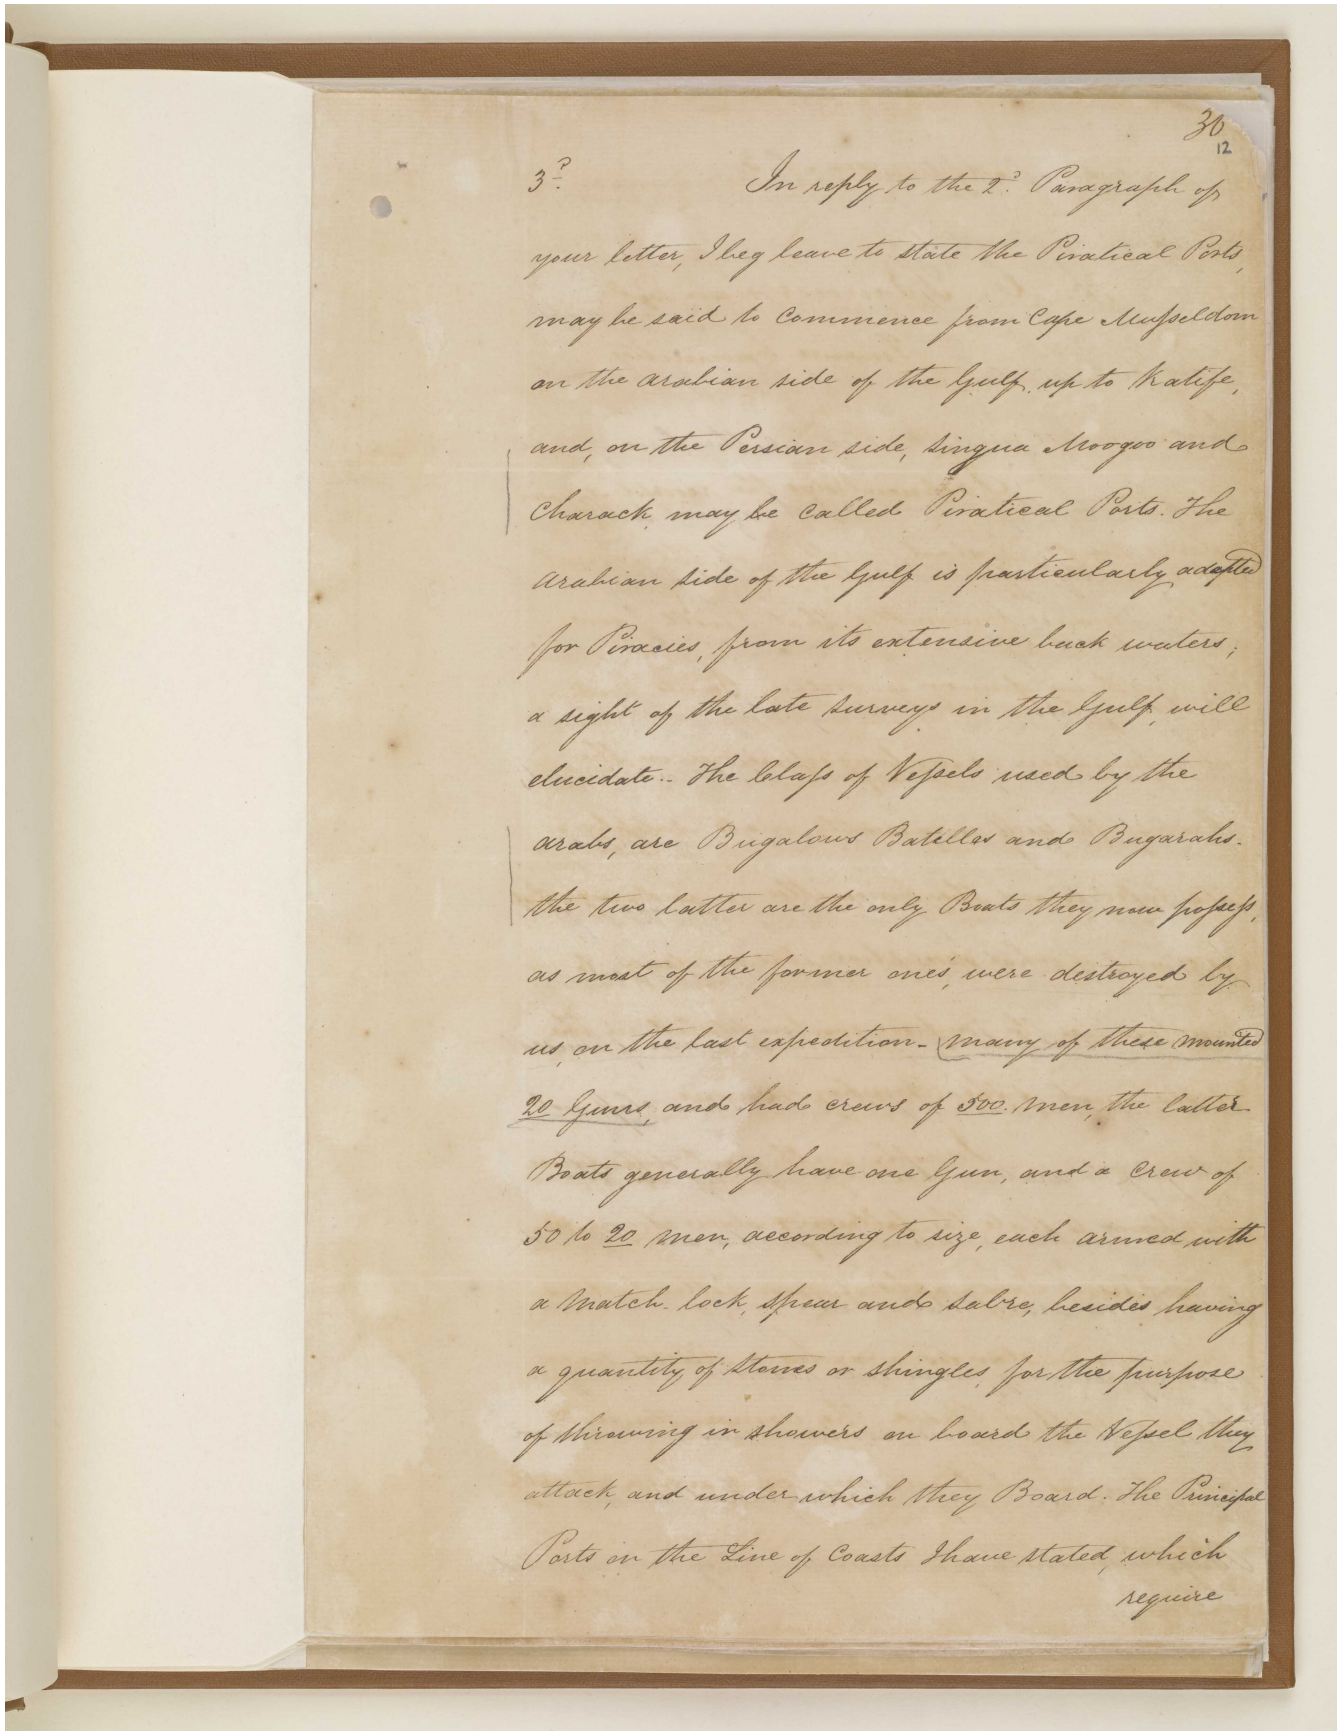 30
12
3d. In reply to the 2d. Paragraph of
your letter, I beg leave to state the Piratical Ports,
may be said to commence from Cape Musseldom
on the Arabian side of the Gulf, up to Katife,
and, on the Persian side, Lingua Moogoo and
Charack, may be called Piratical Ports. The
Arabian side of the Gulf is particularly adapted
for Piracies, from its extensive back waters;
a sight of the late Surveys in the Gulf, will
elucidate.. The Class of Vessels used by the
Arabs, are Bugalows Batellas and Bugarahs.
the two latter are the only Boats they now possess,
as most of the former one's, were destroyed by
us, on the last expedition - many of these mounted
20 Guns, and had crews of 500. men, the latter
Boats generally have one Gun, and a Crew of
50 to 20 men, according to size, each armed with
a Match-lock, spear and sabre, besides having
a quantity of stones or shingles, for the purpose
of throwing in showers on board the Vessel they
attack, and under which they Board. The Principal
Ports on the Line of Coasts I have stated, which
require